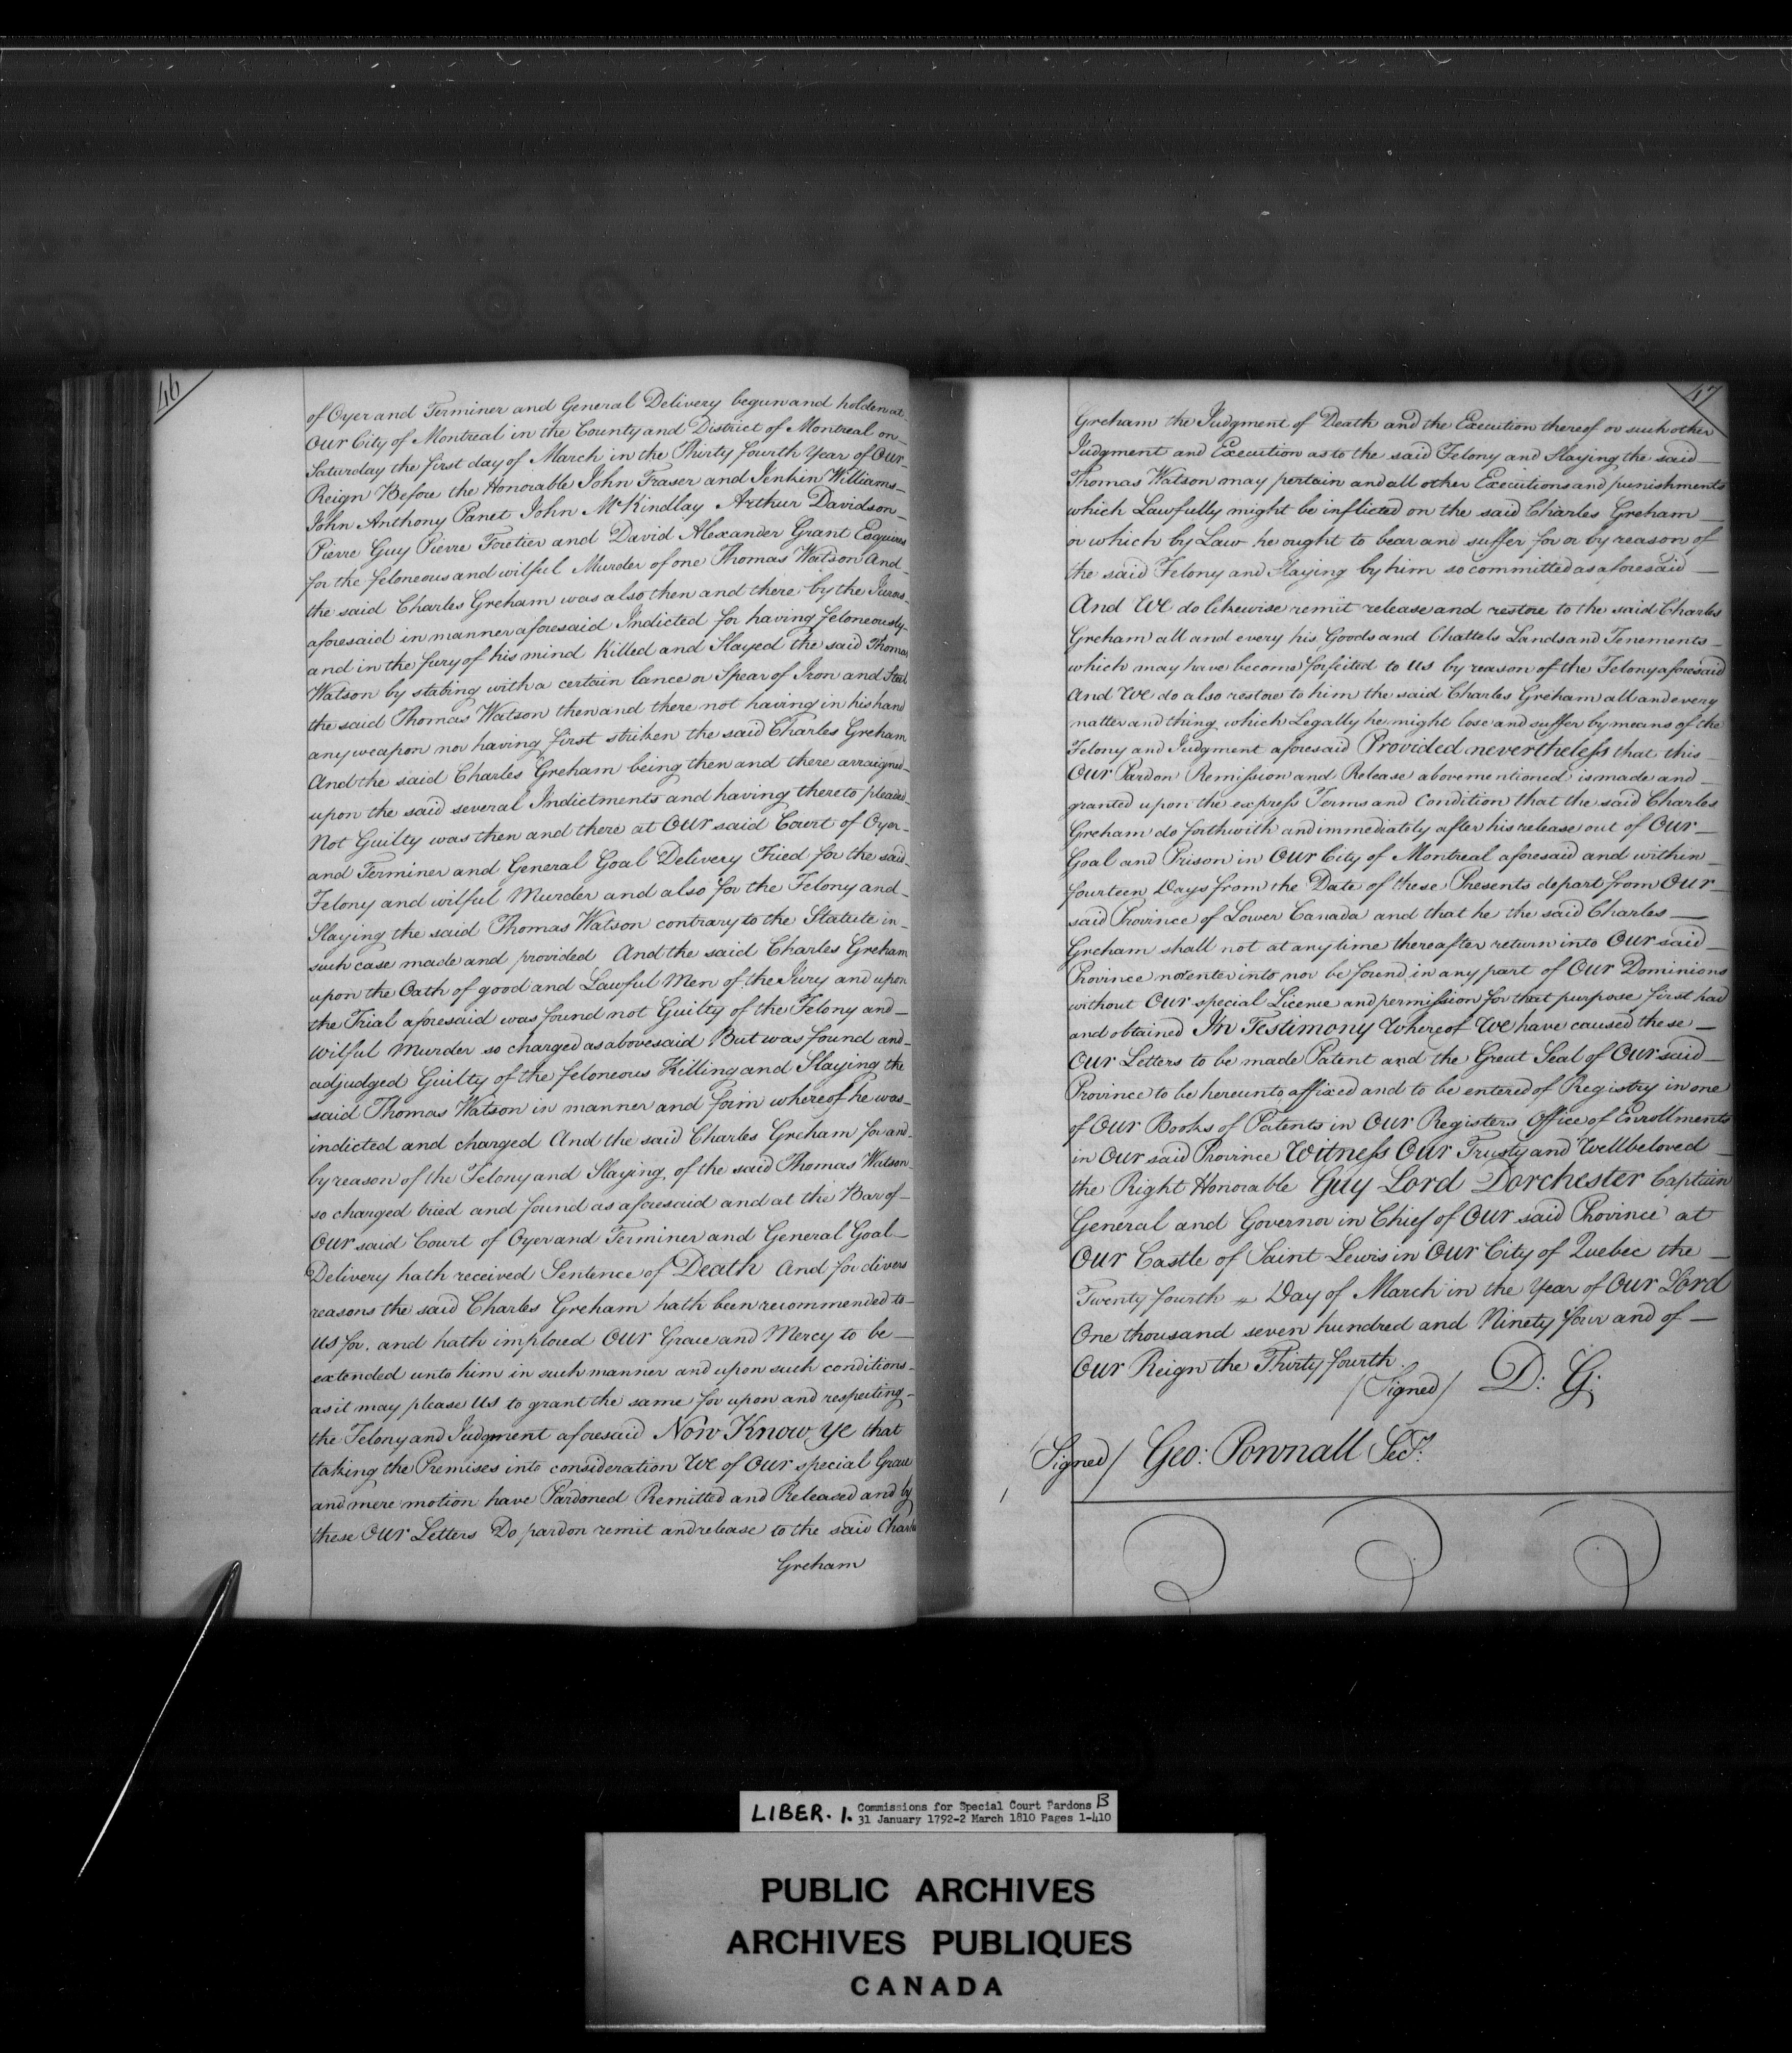 46
of Oyer and Terminer and General Delivery begun and holden at
Our City of Montreal in the County and District of Montreal on
Saturday the first day of March in the Thirty fourth Year of Our
Reign Before the Honorable John Fraser and Jenkin Williams
John Anthony Panet John McKindlay Arthur Davidson
Pierre Guy Pierre Foretier and David Alexander Grant Esquires
for the feloneous and wilful Murder of one Thomas Watson And
the said Charles Greham was also then and there by the Jurors
aforesaid in manner aforesaid Indicted for having feloneously
and in the fury of his mind Killed and Slayed the said Thomas
Watson by stabing with a certain lance or Spear of Iron and Steel
the said Thomas Watson then and there not having in his hand
any weapon nor having first striken the said Charles Greham
And the said Charles Greham being then and there arraigned
upon the said several Indictments and having thereto pleaded
Not Guilty was then and there at Our said Court of Oyer
and Terminer and General Goal Delivery Tried for the said
Felony and wilful Murder and also for the Felony and
Slaying the said Thomas Watson contrary to the Statute in
such case made and provided And the said Charles Greham
upon the Oath of good and Lawful Men of the Jury and upon
the Trial aforesaid was found not Guilty of the Felony and
Wilful Murder so charged as abovesaid But was found and
adjudged Guilty of the feloneous Killing and Slaying the
said Thomas Watson in manner and form whereof he was
indicted and charged And the said Charles Greham for and
by reason of the Felony and Slaying of the said Thomas Watson
so charged tried and found as aforesaid and at the Bar of
Our said Court of Oyer and Terminer and General Goal
Delivery hath received Sentence of Death And for divers
reasons the said Charles Greham hath been recommended to
Us for, and hath implored Our Grace and Mercy to be
extended unto him in such manner and upon such conditions
as it may please Us to grant the same for upon and respecting
the Felony and Judgment aforesaid Now Know Ye that
taking the Premises into consideration We of Our special Grace
and mere motion have Pardoned Remitted and Released and by
these Our Letters Do pardon remit and release to the said Charles
Greham
47
Greham the Judgment of Death and the Execution thereof or such other
Judgment and Execution as to the said Felony and Slaying the said
Thomas Watson may pertain and all other Executions and punishments
which Lawfully might be inflicted on the said Charles Greham
or which by Law he ought to bear and suffer for or by reason of
the said Felony and Slaying by him so committed as aforesaid
And We do likewise remit release and restore to the said Charles
Greham all and every his Goods and Chattels Lands and Tenements
which may have become forfeited to Us by reason of the Felony aforesaid
And We do also restore to him the said Charles Greham all and every
matter and thing which Legally he might lose and suffer by means of the
Felony and Judgment aforesaid Provided nevertheless that this
Our Pardon Remission and Release above mentioned is made and
granted upon the express Terms and Condition that the said Charles
Greham do forthwith and immediately after his release out of Our
Goal and Prison in Our City of Montreal aforesaid and within
fourteen Days from the Date of these Presents depart from Our
said Province of Lower Canada and that he the said Charles
Greham shall not at any time thereafter return into Our said
Province nor enter into nor be found in any part of Our Dominions
without Our special Licence and permission for that purpose first had
and obtained In Testimony Whereof We have caused these
Our Letters to be made Patent and the Great Seal of Our said
Province to be hereunto affixed and to be entered of Registry in one
of Our Books of Patents in Our Registers Office of Enrollments
in Our said Province Witness Our Trusty and Wellbeloved
the Right Honorable Guy Lord Dorchester Captain
General and Governor in Chief of Our said Province at
Our Castle of Saint Lewis in Our City of Quebec the
Twenty fourth Day of March in the Year of Our Lord
One thousand seven hundred and Ninety four and of
Our Reign the Thirty fourth.
/Signed/ D: G:
/Signed/ Geo: Pownall Secy.
LIBER. 1. Commissions for Special Court Pardons B
31 January 1792-2 March 1810 Pages 1-410
PUBLIC ARCHIVES
ARCHIVES PUBLIQUES
CANADA